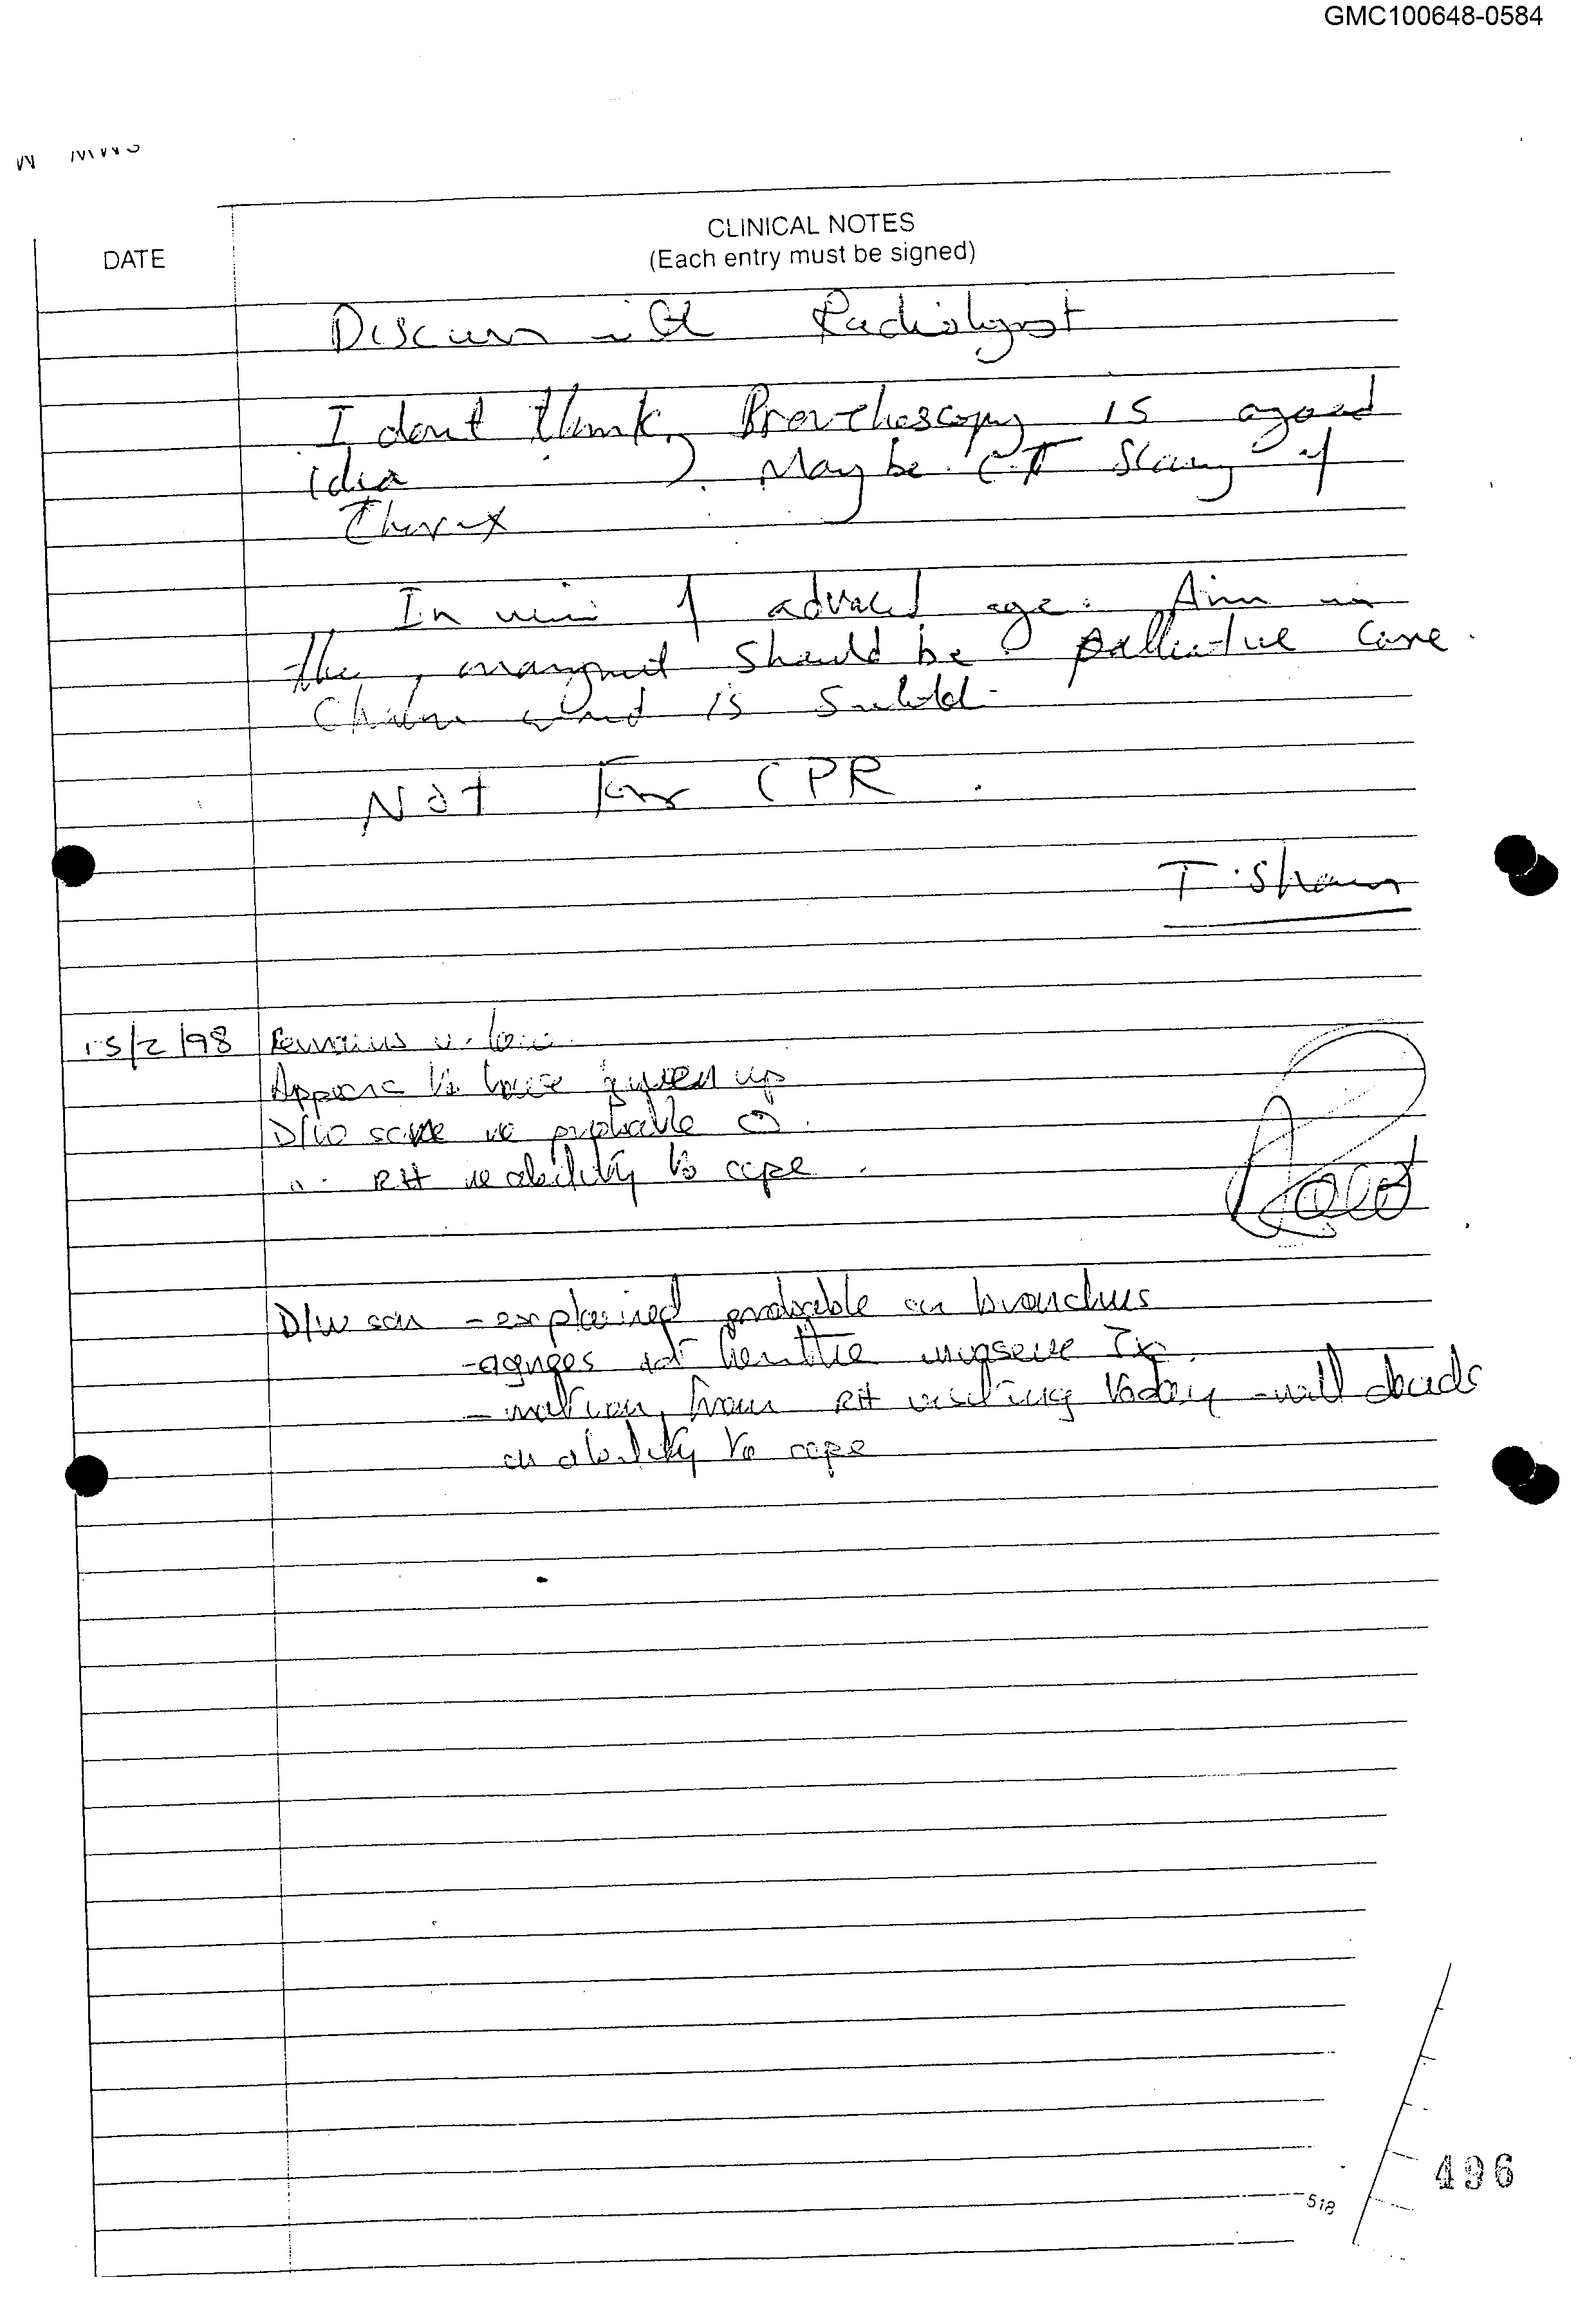 GMC100648-0584
CLINICAL NOTES
DATE
(Each entry must be signed)
Discuss with Radiologist
I dont think Bronchoscopy is a good
idea. May be CT Scan of
Thorax
In view of advanced age. Aim in
the management should be palliative care.
is
Not For CPR.
15/2/98 Remains v. low.
Appears to have given up
D/W son re probable
RH re ability to cope.
D/W son - explained probable ca bronchus
- agrees not for
- matron from RH visiting today - will decide
on ability to cope
518
496